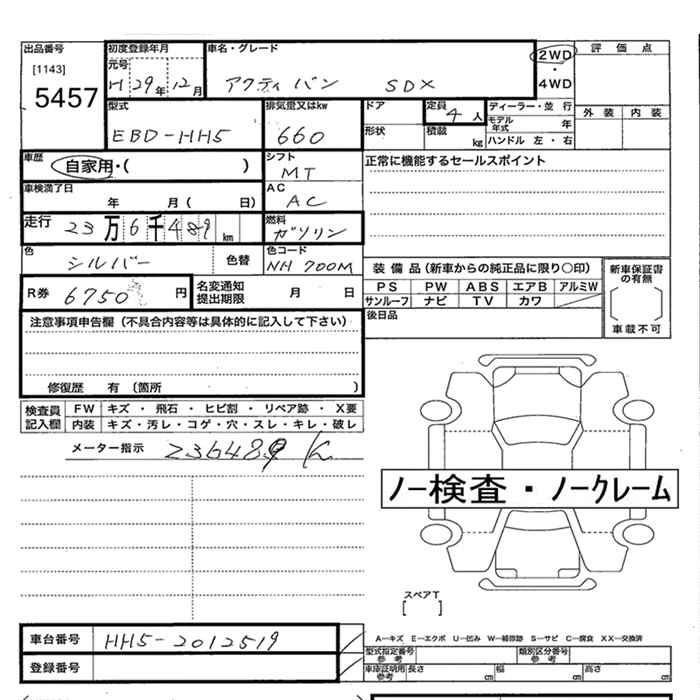 出品番号 初度登録年月 車名・グレード 2WD 評価点
[1143] 元号
5457 H 29年 12月 アクティ バン SDX ・ 4WD
型式 排気量又はkw ドア 定員 4人 ディーラー・並行 外装 内装
EBD-HH5 660 形状 積載 kg モデル年式 年
ハンドル 左・右
車歴 自家用・( ) シフト MT 正常に機能するセールスポイント
車検満了日 年 月( 日) AC AC
走行 23万6千489 km 燃料 ガソリン
色 シルバー 色替 色コード NH700M
装備品(新車からの純正品に限り○印) 新車保証書の有無
R券 6750円 名変通知提出期限 月 日 PS PW ABS エアB アルミW
サンルーフ ナビ TV カワ
注意事項申告欄(不具合内容等は具体的に記入して下さい) 後日品 車載不可
修復歴 有(箇所 )
検査員記入欄 FW キズ・飛石・ヒビ割・リペア跡・X要
内装 キズ・汚レ・コゲ・穴・スレ・キレ・破レ
メーター指示 236489 K
ノー検査・ノークレーム
スペアT
[ ]
車台番号 HH5-2012519 A―キズ E―エクボ U―凹み W―補修跡 S―サビ C―腐食 XX―交換済
型式指定番号 参考 類別区分番号 参考
登録番号 車庫証明用 参考 長さ cm 幅 cm 高さ cm